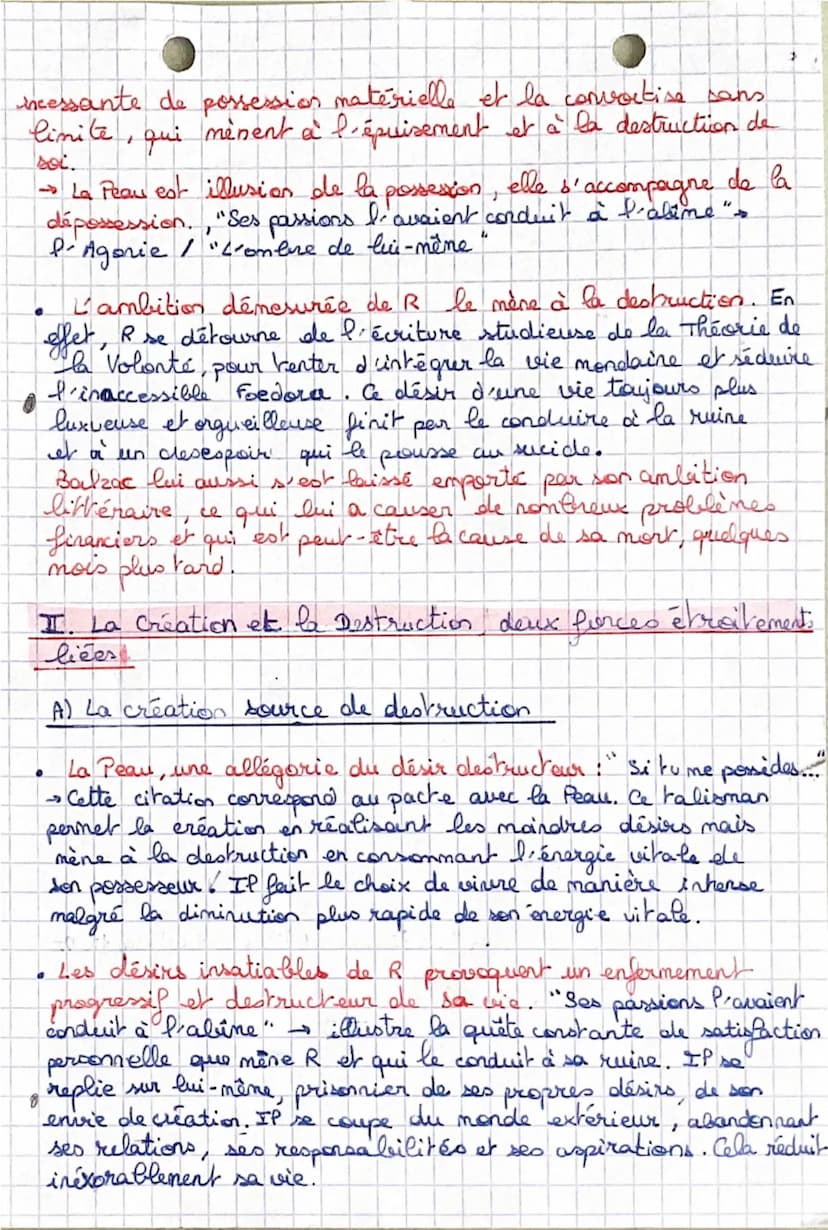 incessante de possession matérielle et la convoitise sans
limite, qui mènent à l'épuisement et à la destruction de
soi.
→ La Peau est illusion de la possession, elle s'accompagne de la
dépossession. , "Ses passions l'avaient conduit à l'abîme" →
l'Agonie / "L'ombre de lui-même"
• L'ambition démesurée de R le mène à la destruction. En
effet, R se détourne de l'écriture studieuse de la Théorie de
la Volonté, pour tenter d'intégrer la vie mondaine et séduire
l'inaccessible Foedora. Ce désir d'une vie toujours plus
luxueuse et orgueilleuse finit par le conduire à la ruine
et à un desespoir qui le pousse au suicide.
Balzac lui aussi s'est laissé emporté par son ambition
littéraire, ce qui lui a causer de nombreux problèmes
financiers et qui est peut-être la cause de sa mort, quelques
mois plus tard.
II. La Création et la Destruction, deux forces étroitements
liées.
A) La création source de destruction
• La Peau, une allégorie du désir destructeur : "Si tu me possides..."
→ Cette citation correspond au pacte avec la Peau. Ce talisman
permet la création en réalisant les moindres désirs mais
mène à la destruction en consommant l'énergie vitale de
son possesseur. IP fait le choix de vivre de manière intense
malgré la diminution plus rapide de son énergie vitale.
• Les désirs insatiables de R provoquent un enfermement
progressif et destructeur de sa vie. "Ses passions l'avaient
conduit à l'abîme" → illustre la quête constante de satisfaction
personnelle que mène R et qui le conduit à sa ruine. IP se
replie sur lui-même, prisonnier de ses propres désirs, de son
envie de création. IP se coupe du monde extérieur, abandonnant
ses relations, ses responsabilités et ses aspirations. Cela réduit
inéxorablement sa vie.